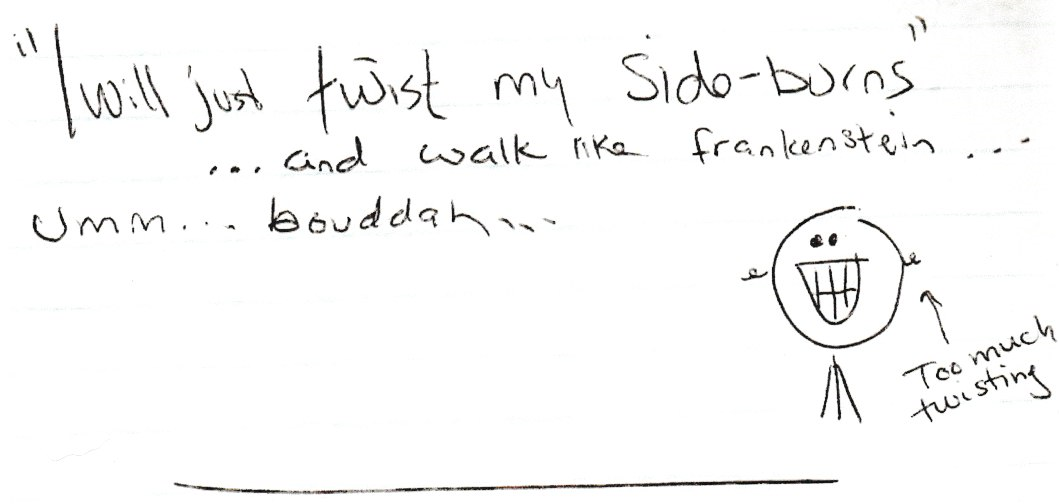 "I will just twist my Side-burns"
... and walk like frankenstein ...
Umm... bouddah...
Too much
twisting